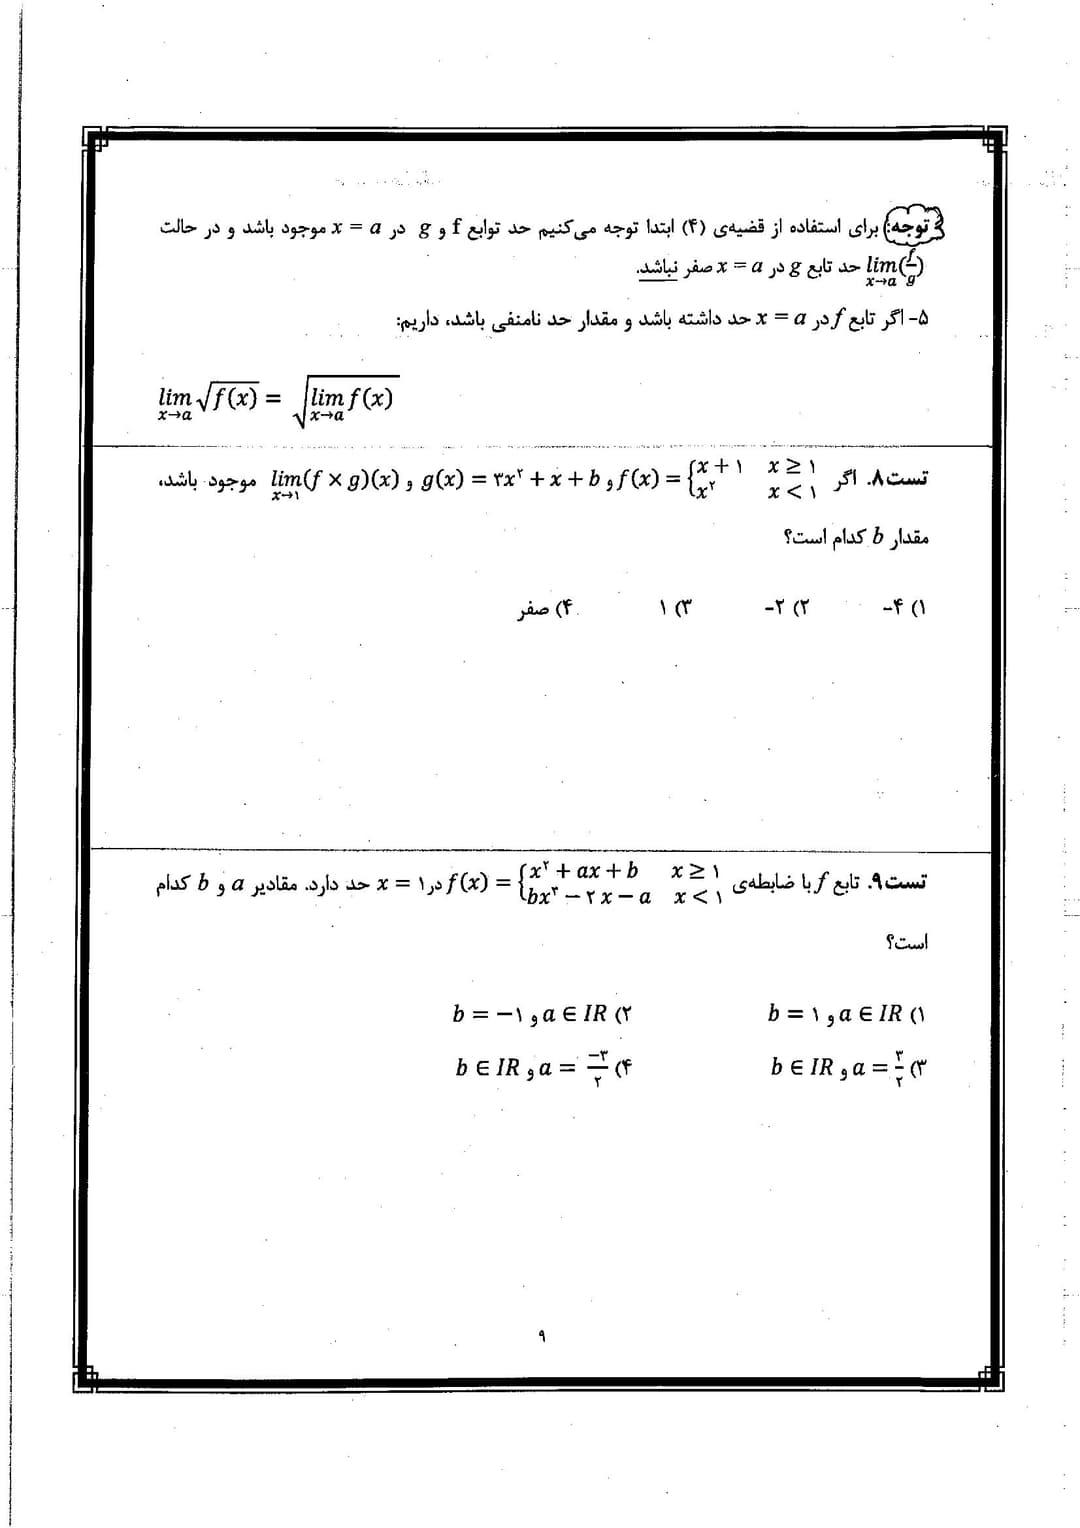 توجه: برای استفاده از قضیه‌ی (۴) ابتدا توجه می‌کنیم حد توابع f و g در x = a موجود باشد و در حالت
lim(f/g) x→a حد تابع g در x = a صفر نباشد.
۵- اگر تابع f در x = a حد داشته باشد و مقدار حد نامنفی باشد، داریم:
lim x→a √f(x) = √(lim x→a f(x))
تست۸. اگر f(x) = { x + ۱ x ≥ ۱ ; x² x < ۱ و g(x) = ۳x² + x + b و lim x→۱ (f × g)(x) موجود باشد،
مقدار b کدام است؟
۱) ۴- ۲) ۲- ۳) ۱ ۴) صفر
تست۹. تابع f با ضابطه‌ی f(x) = { x² + ax + b x ≥ ۱ ; bx³ − ۲x − a x < ۱ در x = ۱ حد دارد. مقادیر a و b کدام
است؟
۱) a ∈ IR و b = ۱ ۲) a ∈ IR و b = −۱
۳) a = ۳/۲ و b ∈ IR ۴) a = −۳/۲ و b ∈ IR
۹